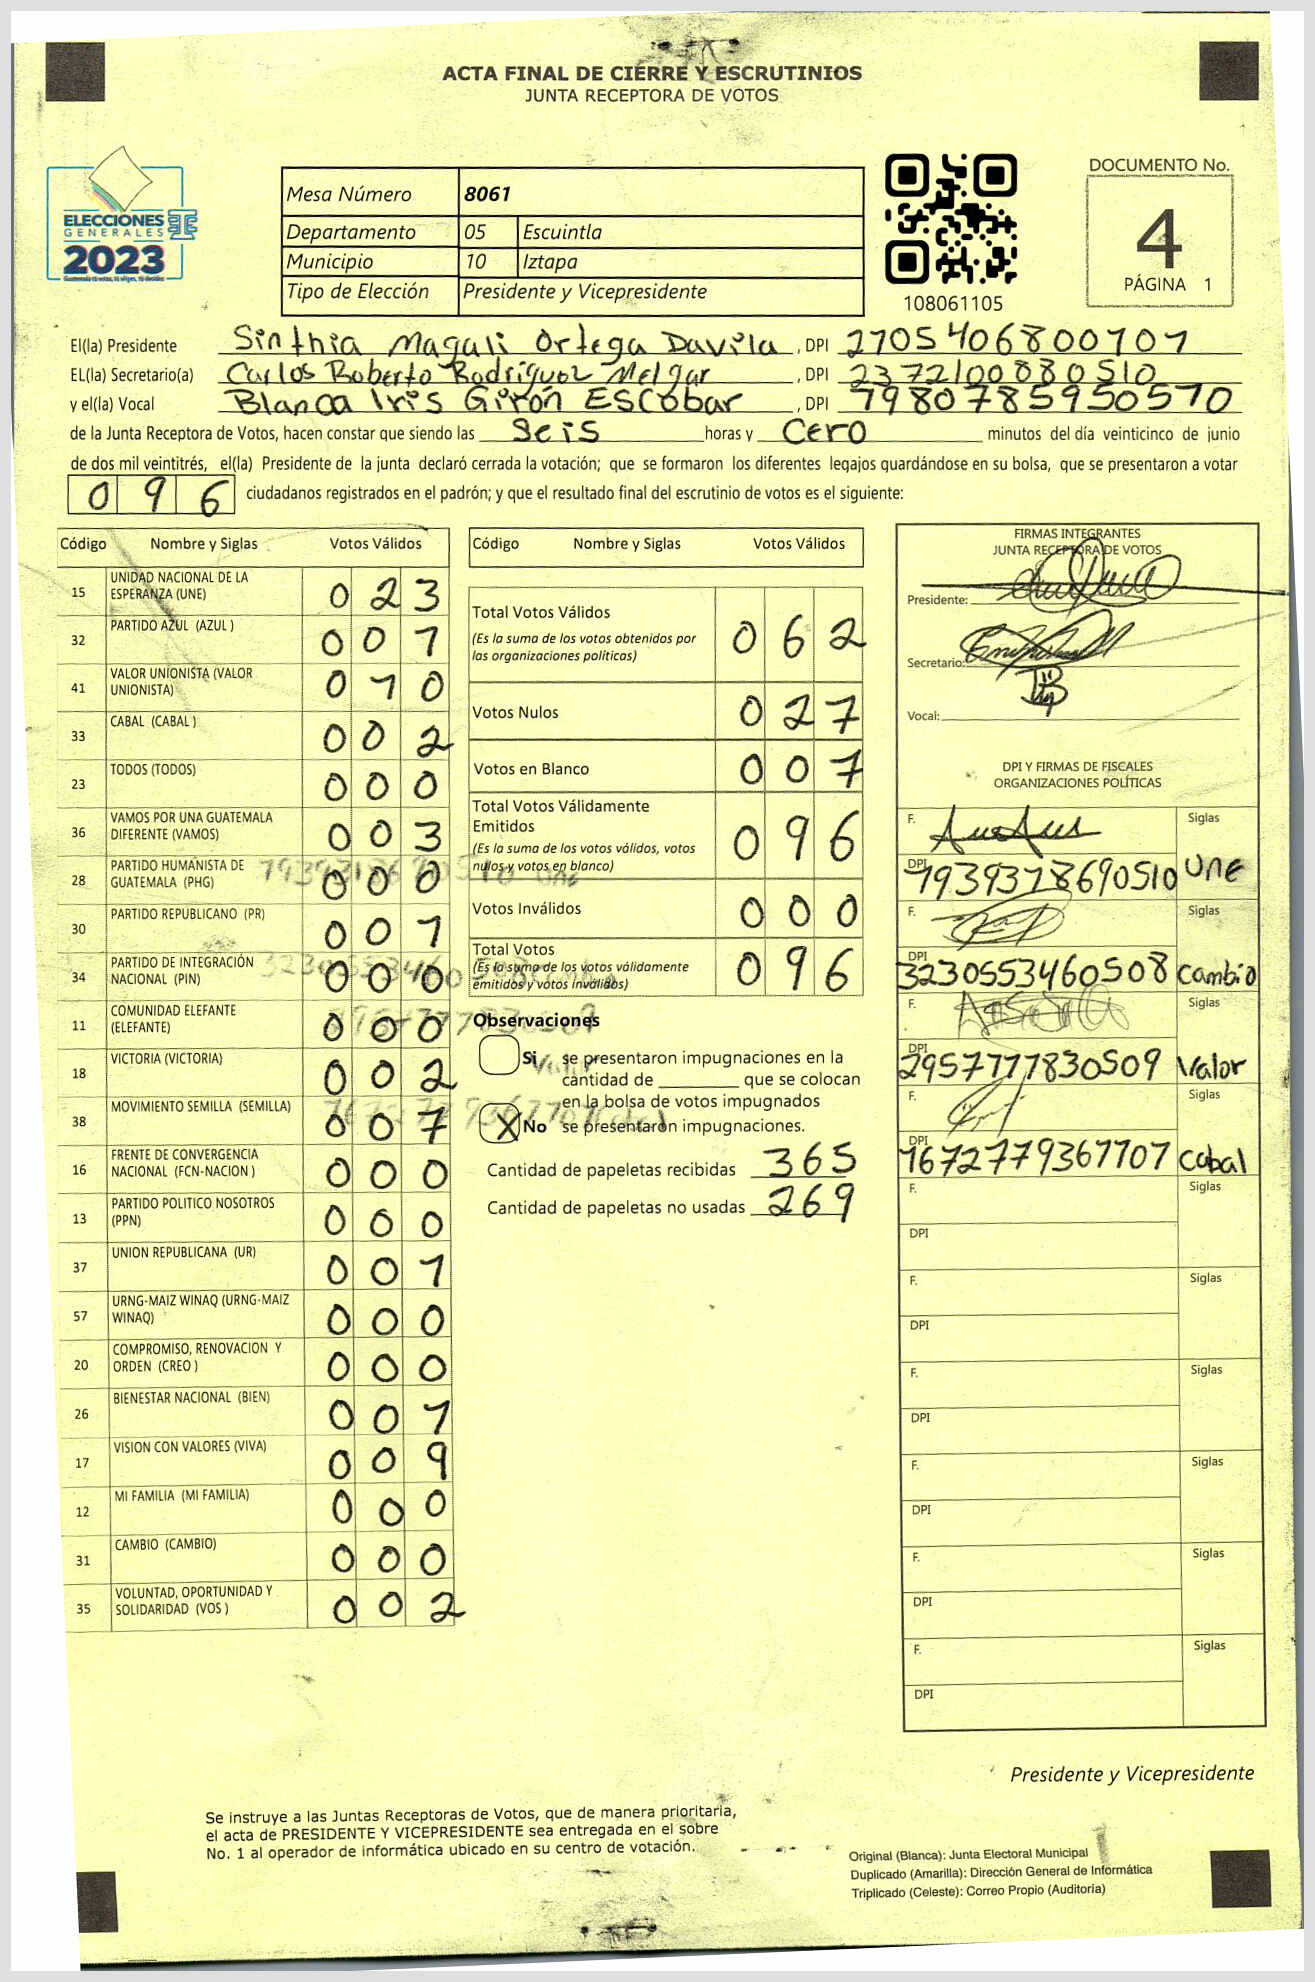 ACTA FINAL DE CIERRE Y ESCRUTINIOS
JUNTA RECEPTORA DE VOTOS
ELECCIONES
GENERALES
2023
Mesa Número 8061
Departamento 05 Escuintla
Municipio 10 Iztapa
Tipo de Elección Presidente y Vicepresidente
108061105
DOCUMENTO No.
4
PÁGINA 1
El(la) Presidente Sinthia Magali Ortega Davila , DPI 2705406800101
EL(la) Secretario(a) Carlos Roberto Rodriguez Melgar , DPI 2372100880510
y el(la) Vocal Blanca Iris Girón Escobar , DPI 1980785950510
de la Junta Receptora de Votos, hacen constar que siendo las Seis horas y Cero minutos del día veinticinco de junio
de dos mil veintitrés, el(la) Presidente de la junta declaró cerrada la votación; que se formaron los diferentes legajos guardándose en su bolsa, que se presentaron a votar
096 ciudadanos registrados en el padrón; y que el resultado final del escrutinio de votos es el siguiente:
Código Nombre y Siglas Votos Válidos
15 UNIDAD NACIONAL DE LA ESPERANZA (UNE) 023
32 PARTIDO AZUL (AZUL ) 001
41 VALOR UNIONISTA (VALOR UNIONISTA) 010
33 CABAL (CABAL ) 002
23 TODOS (TODOS) 000
36 VAMOS POR UNA GUATEMALA DIFERENTE (VAMOS) 003
28 PARTIDO HUMANISTA DE GUATEMALA (PHG) 000
30 PARTIDO REPUBLICANO (PR) 001
34 PARTIDO DE INTEGRACIÓN NACIONAL (PIN) 000
11 COMUNIDAD ELEFANTE (ELEFANTE) 000
18 VICTORIA (VICTORIA) 002
38 MOVIMIENTO SEMILLA (SEMILLA) 007
16 FRENTE DE CONVERGENCIA NACIONAL (FCN-NACION ) 000
13 PARTIDO POLITICO NOSOTROS (PPN) 000
37 UNION REPUBLICANA (UR) 001
57 URNG-MAIZ WINAQ (URNG-MAIZ WINAQ) 000
20 COMPROMISO, RENOVACION Y ORDEN (CREO ) 000
26 BIENESTAR NACIONAL (BIEN) 001
17 VISION CON VALORES (VIVA) 009
12 MI FAMILIA (MI FAMILIA) 000
31 CAMBIO (CAMBIO) 000
35 VOLUNTAD, OPORTUNIDAD Y SOLIDARIDAD (VOS ) 002
Código Nombre y Siglas Votos Válidos
Total Votos Válidos 062
(Es la suma de los votos obtenidos por
las organizaciones políticas)
Votos Nulos 027
Votos en Blanco 007
Total Votos Válidamente
Emitidos 096
(Es la suma de los votos válidos, votos
nulos y votos en blanco)
Votos Inválidos 000
Total Votos 096
(Es la suma de los votos válidamente
emitidos y votos inválidos)
Observaciones
Si se presentaron impugnaciones en la
cantidad de ________ que se colocan
en la bolsa de votos impugnados
X No se presentaron impugnaciones.
Cantidad de papeletas recibidas 365
Cantidad de papeletas no usadas 269
FIRMAS INTEGRANTES
JUNTA RECEPTORA DE VOTOS
Presidente:
Secretario:
Vocal:
DPI Y FIRMAS DE FISCALES
ORGANIZACIONES POLÍTICAS
F. Siglas
DPI 1939378690510 UNE
F. Siglas
DPI 3230553460508 Cambio
F. Siglas
DPI 2957777830509 Valor
F. Siglas
DPI 1672779367707 Cabal
F. Siglas
DPI
F. Siglas
DPI
F. Siglas
DPI
F. Siglas
DPI
F. Siglas
DPI
F. Siglas
DPI
Presidente y Vicepresidente
Se instruye a las Juntas Receptoras de Votos, que de manera prioritaria,
el acta de PRESIDENTE Y VICEPRESIDENTE sea entregada en el sobre
No. 1 al operador de informática ubicado en su centro de votación.
Original (Blanca): Junta Electoral Municipal
Duplicado (Amarilla): Dirección General de Informática
Triplicado (Celeste): Correo Propio (Auditoría)